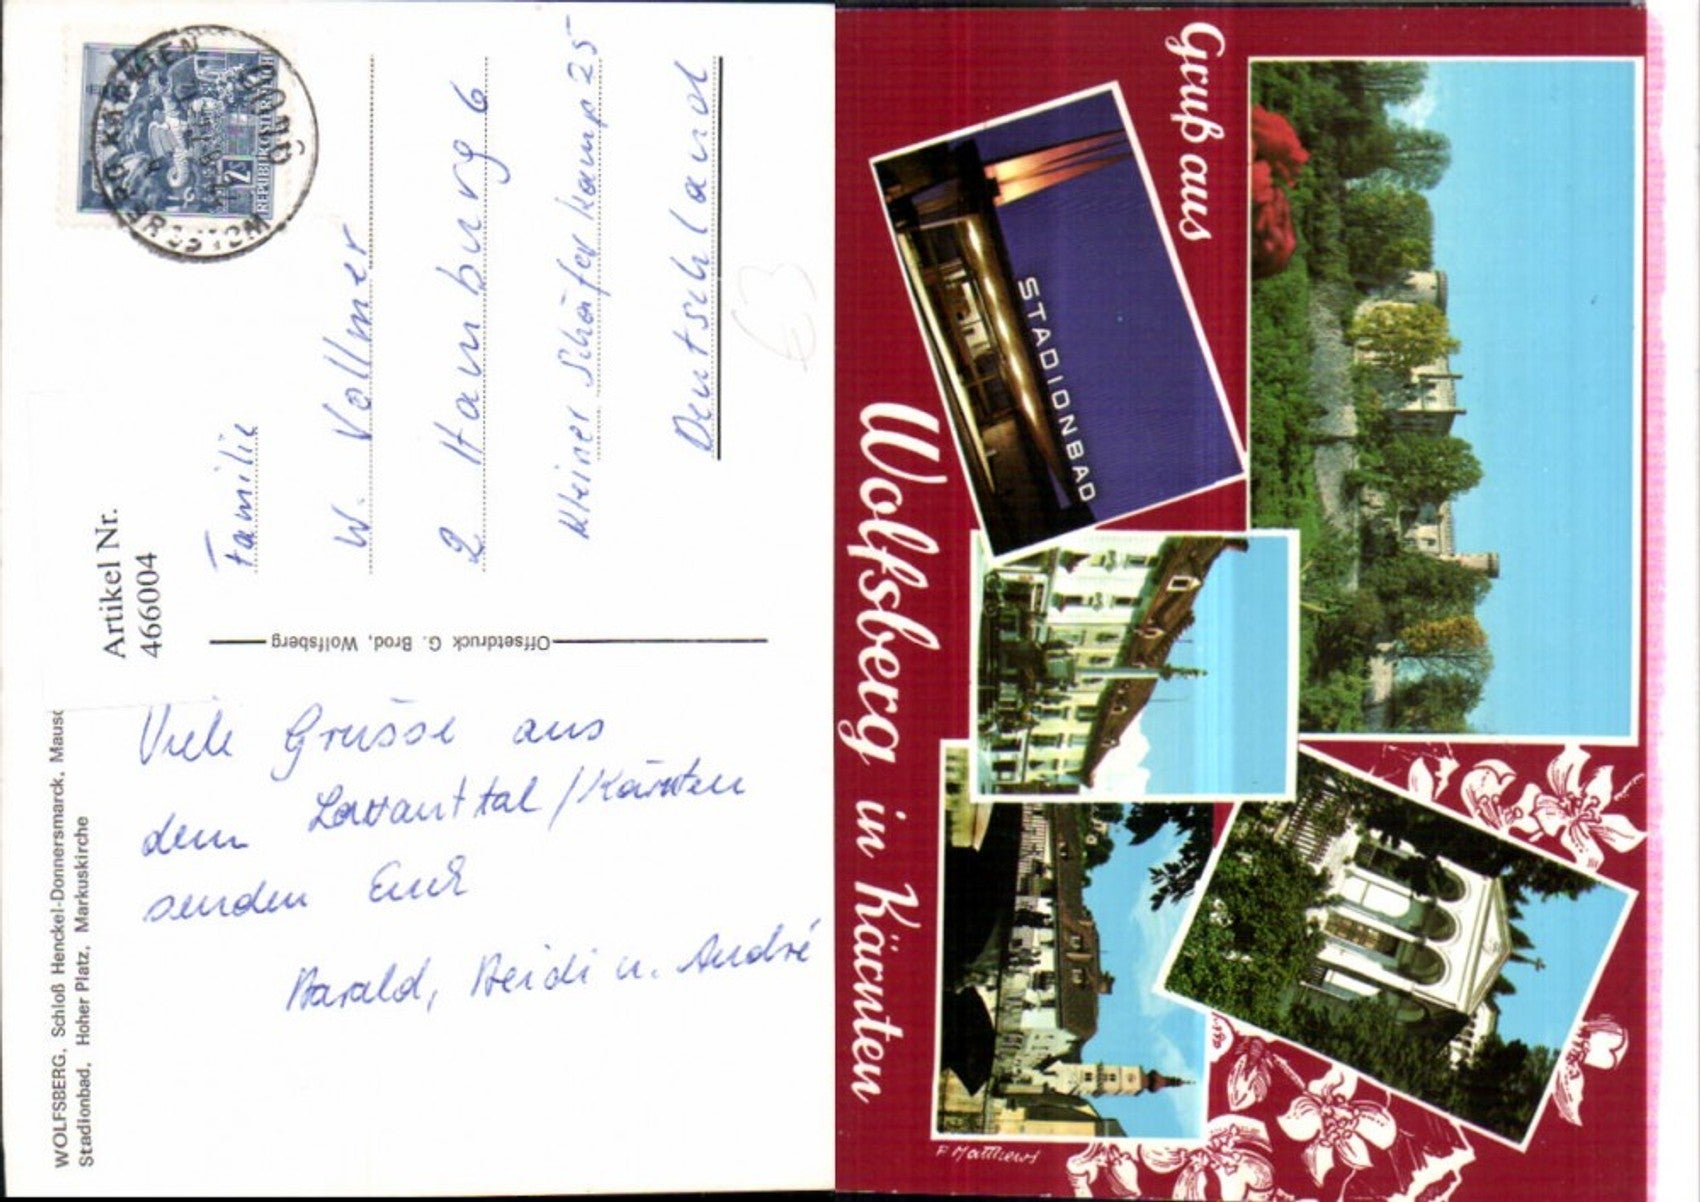 WOLFSBERG, Schloß Henckel-Donnersmarck, Maus
Stadionbad, Hoher Platz, Markuskirche
Artikel Nr.
466004
Viele Grüsse aus
dem Lavanttal/Kärnten
senden Euch
Harald, Heidi u. André
Offsetdruck G. Brod, Wolfsberg
REPUBLIK ÖSTERREICH
2
9400
WOLFSBERG, KÄRNTEN
Familie
W. Vollmer
2 Hamburg 6
Kleiner Schäferkamp 25
Deutschland
€3
Gruß aus
STADIONBAD
Wolfsberg in Kärnten
P. Matthews